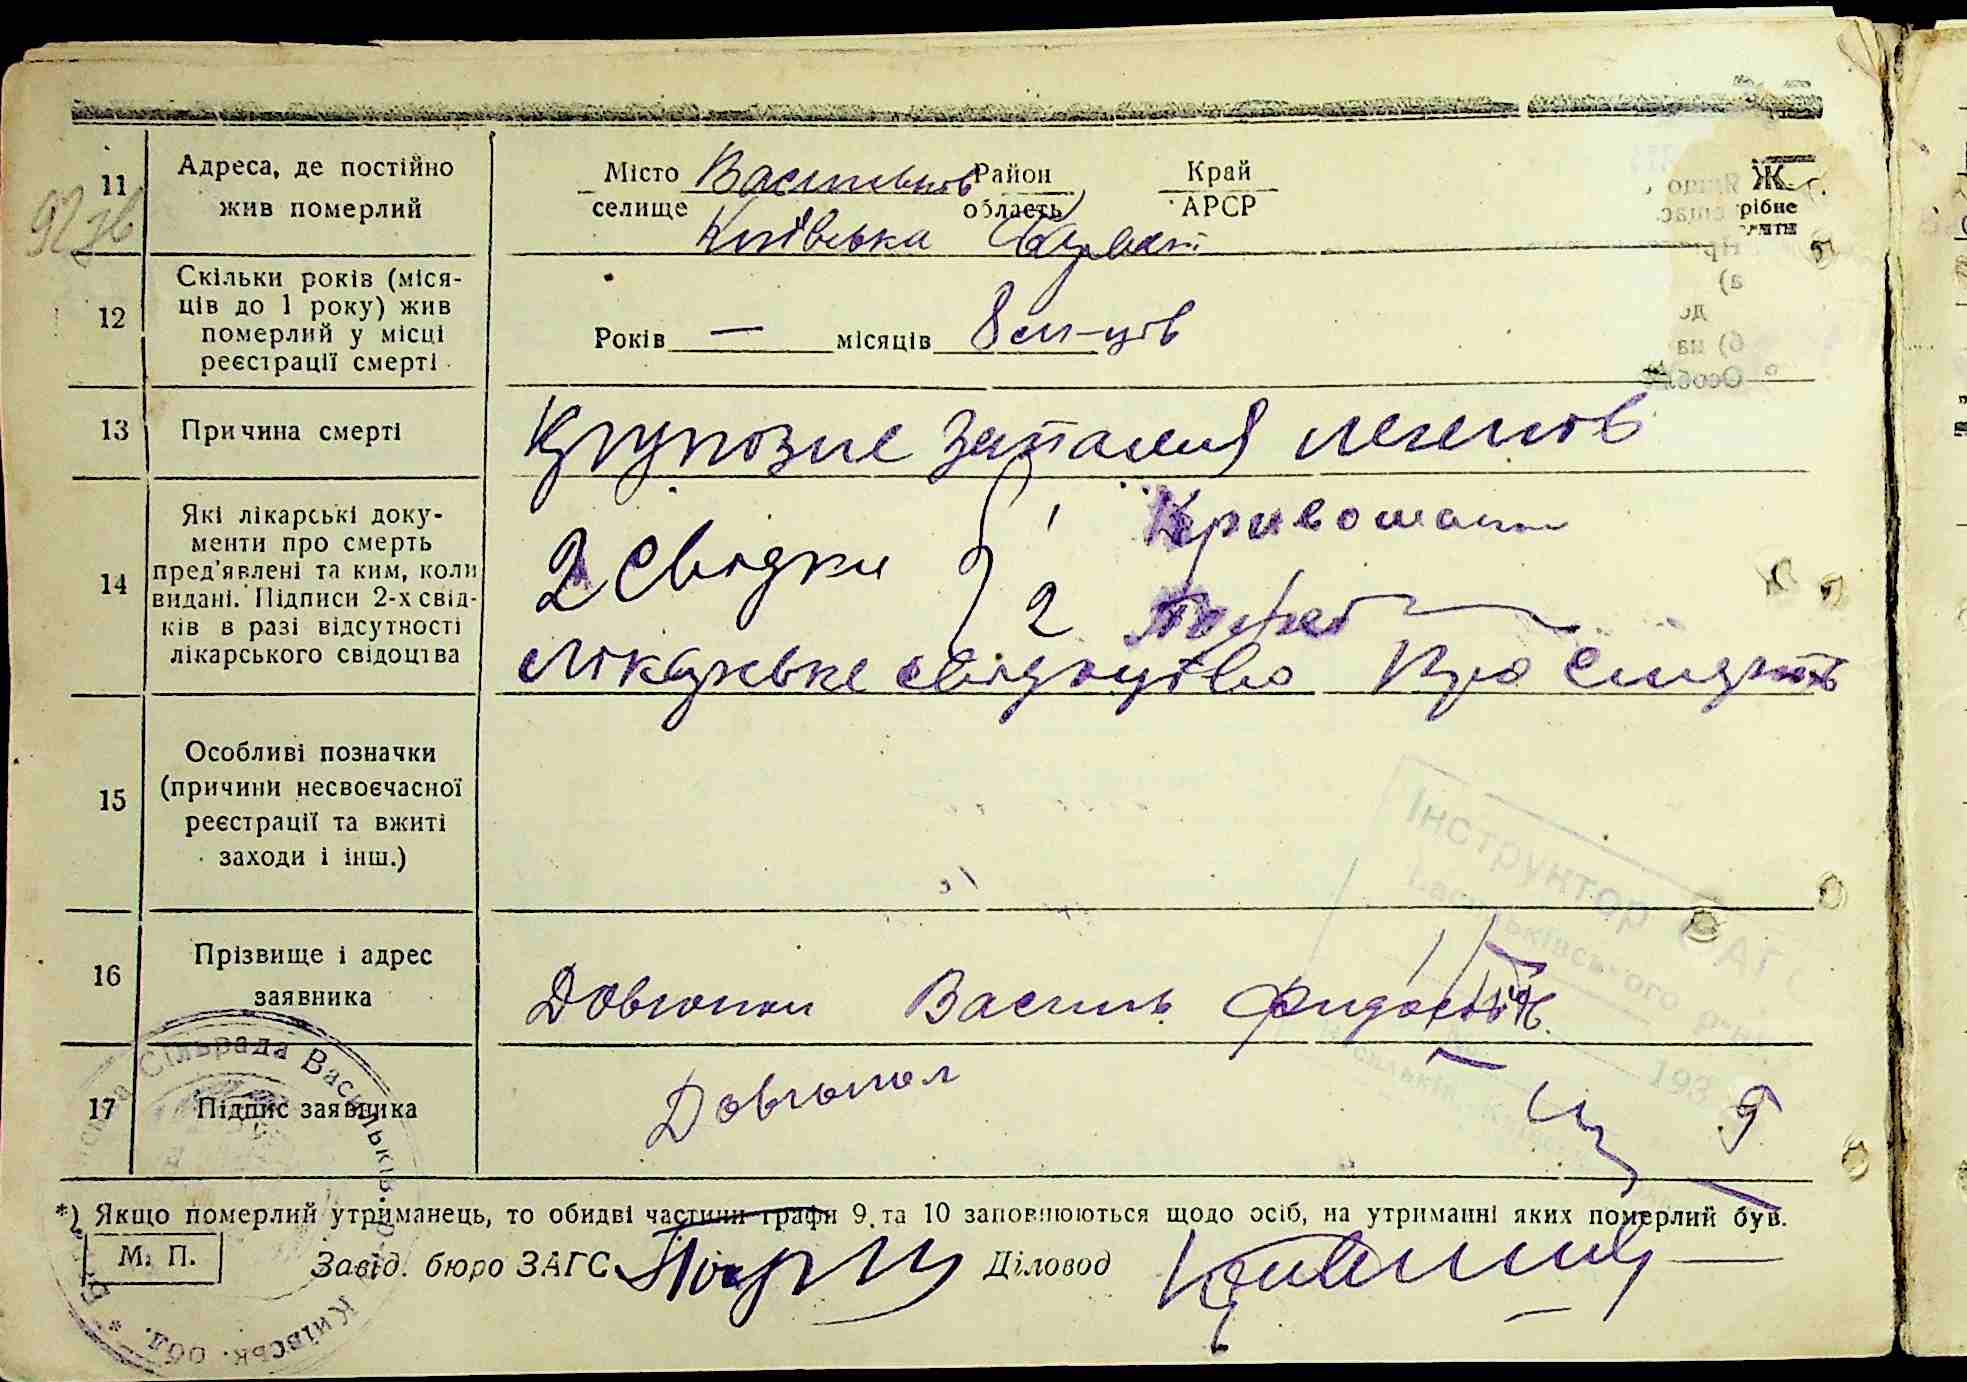 11 Адреса, де постійно жив померлий
Місто Васильків Район Край
селище область АРСР
Київська
92
12 Скільки років (місяців до 1 року) жив померлий у місці реєстрації смерті
Років — місяців 8 м-ців
13 Причина смерті
Крупозне запалия легенів
14 Які лікарські документи про смерть пред'явлені та ким, коли видані. Підписи 2-х свідків в разі відсутності лікарського свідоцтва
2 Свідки 1
2
Лікарське свідоцтво про смерть
15 Особливі позначки (причини несвоєчасної реєстрації та вжиті заходи і інш.)
Інструктор ЗАГС
Васильківського р-ну
193
16 Прізвище і адрес заявника
Довгопол Василь
17 Підпис заявника
Довгопол
Сільрада Васильків. Київськ. обл.
*) Якщо померлий утриманець, то обидві частини графи 9 та 10 заповнюються щодо осіб, на утриманні яких померлий був.
М. П. Завід. бюро ЗАГС Діловод